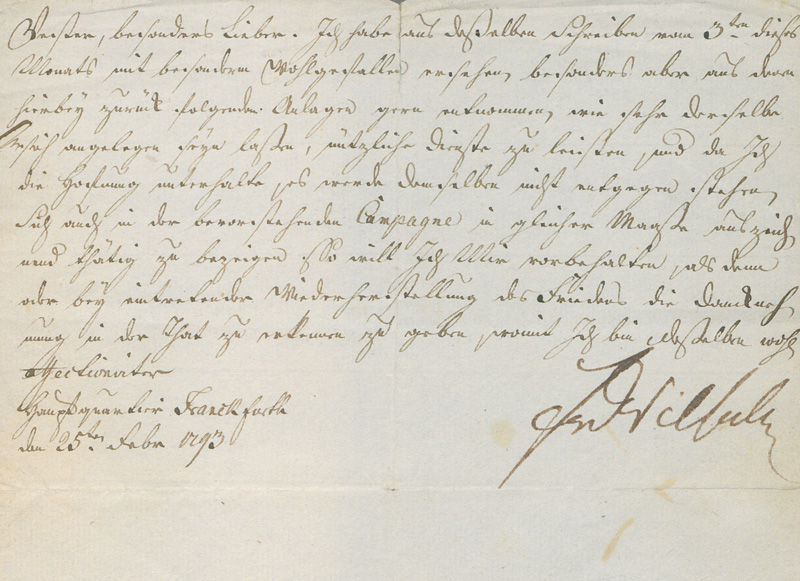 Vester, besonders Lieber. Ich habe aus deßelben Schreiben vom 3ten dieses
Monats mit besonderm Wohlgefallen ersehen, besonders aber aus denen
hierbey zurück folgenden Anlagen gern entnommen, wie sehr derselbe
sich angelegen seyn laßen, nützliche Dienste zu leisten, und da Ich
die Hofnung unterhalte, es werde demselben nicht entgegen stehen,
Sich auch in der bevorstehenden Campagne in gleicher Maaße auszeich
nend thätig zu bezeigen, So will Ich Mir vorbehalten, als denn
oder bey eintretender Wiederherstellung des Friedens die Dankneh
mung in der That zu erkennen zu geben, womit Ich bin deßelben wohl
affectionirter
Hauptquartier Franckfurth
den 25ten Febr 1793
FrWilhelm